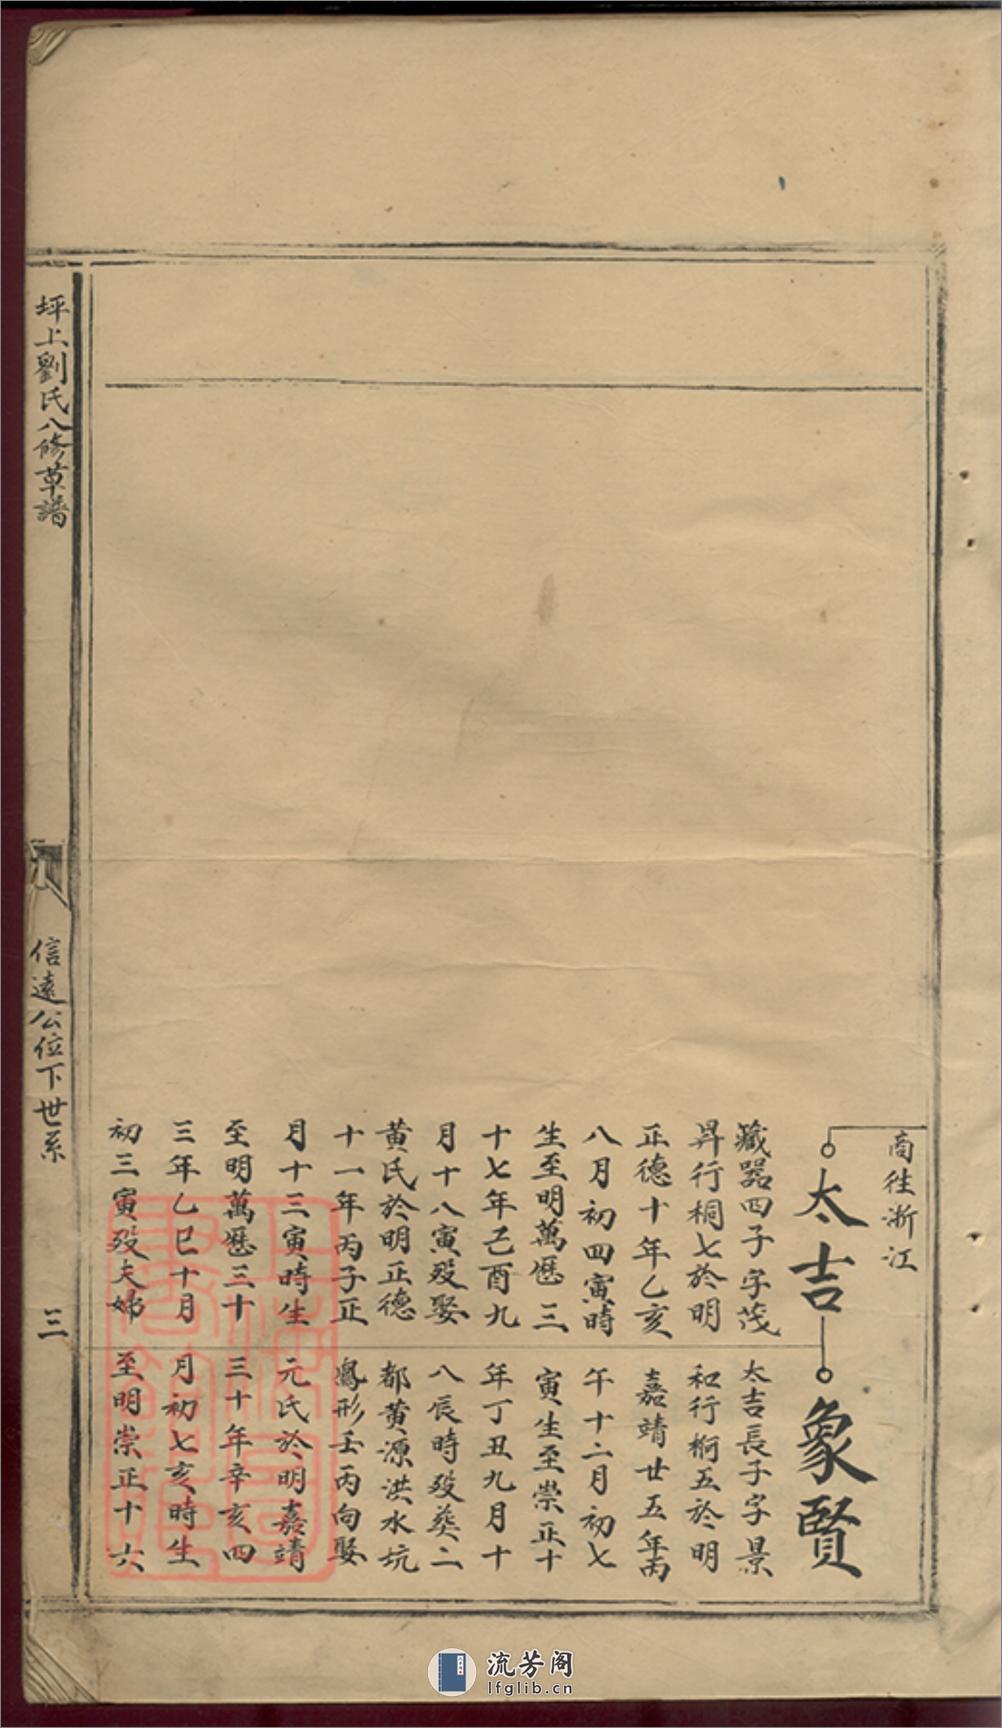 商往浙江
太吉
藏器四子字茂
昇行桐七於明
正德十年乙亥
八月初四寅時
生至明萬歷三
十七年己酉九
月十八寅歿娶
黄氏於明正德
十一年丙子正
月十三寅時生
至明萬歷三十
三年乙巳十月
初三寅歿夫婦
象賢
太吉長子字景
和行桐五於明
嘉靖廿五年丙
午十二月初七
寅生至崇正十
年丁丑九月十
八辰時歿葵二
都黄源洪水坑
鳳形壬丙向娶
元氏於明嘉靖
三十年辛亥四
月初七亥時生
至明崇正十六
坪上劉氏八修草譜
信遠公位下世系
三
流芳阁
lfglib.cn